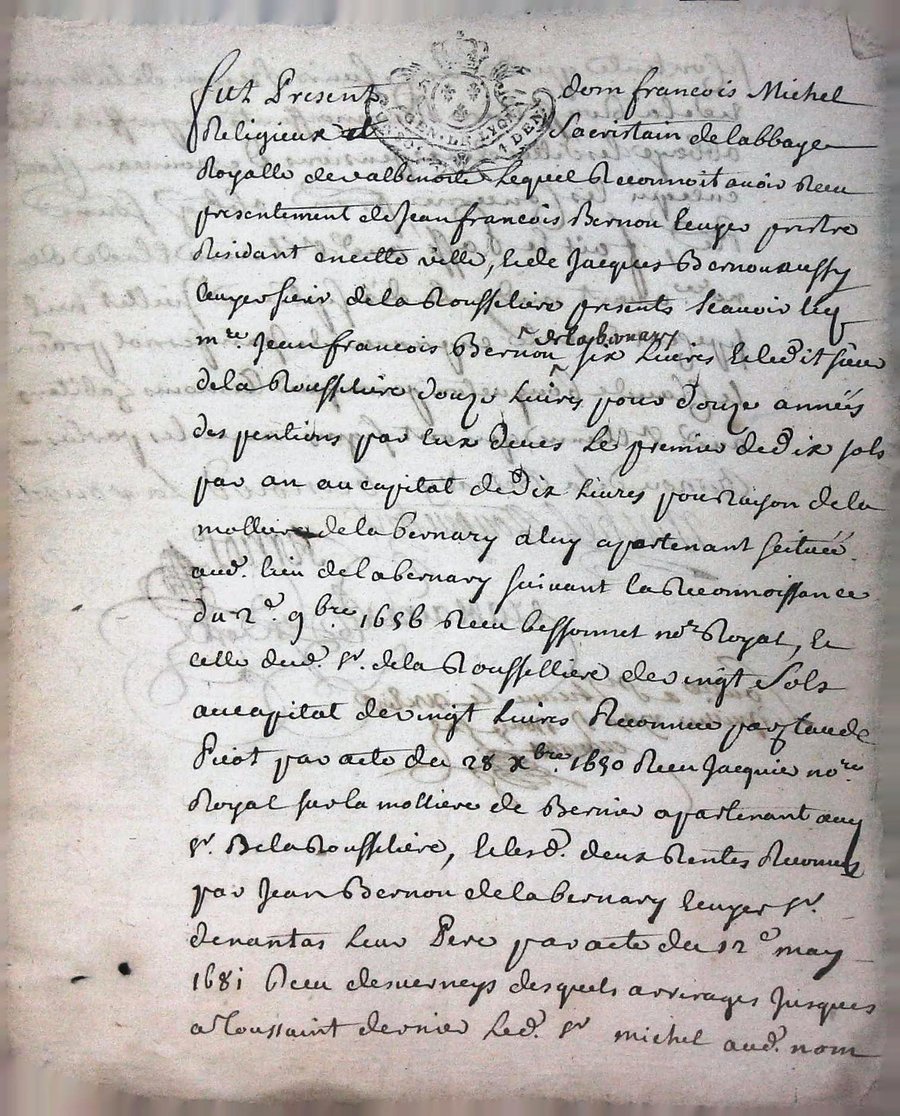 fut Present dom francois Michel
GEN. DE LYON
4 DEN
Religieux et Sacristain de labbaye
Royalle de valbenoite lequel Reconnoit avoir Receu
presentement de Jean francois Bernou Ecuyer prestre
Residant en cette ville, et de Jacques Bernou aussy
Ecuyer sieur de la Rousseliere presents scavoir led
mre. Jean francois Bernou de la bernary six livres et ledit sieur
de la Rousseliere douze livres pour douze années
des pentions par Eux deues le premier de dix sols
par an au capital de dix livres pour Raison de la
molliere de la bernary a luy apartenant scituée
aud. lieu de la bernary suivant la Reconnoissance
du 2e. 9bre 1656 Receu bessonnet nore Royal, et
celle dud. sr. de la Rousselliere de vingt sols
au capital de vingt livres Reconnue par Claude
Picot par acte du 28 xbre. 1650 Receu Jacquier nore.
Royal sur la molliere de Bernier apartenant aud
sr. De la Rousseliere, et lesd. deux Rentes Reconnues
par Jean Bernou de la bernary Ecuyer sr.
de nantas leur Pere par acte du 12e may
1681 Receu desverneys desquels arrerages Jusques
a Toussaint dernier led. sr michel aud. nom